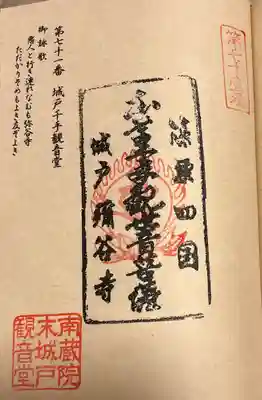 第七十一番
篠栗四国
千手観世音菩薩
城戸彌谷寺
第七十一番 城戸千手観音堂
御詠歌
悪人と行き連れなむも弥谷寺
ただかりそめもよき友ぞよき
南蔵院
末城戸
観音堂